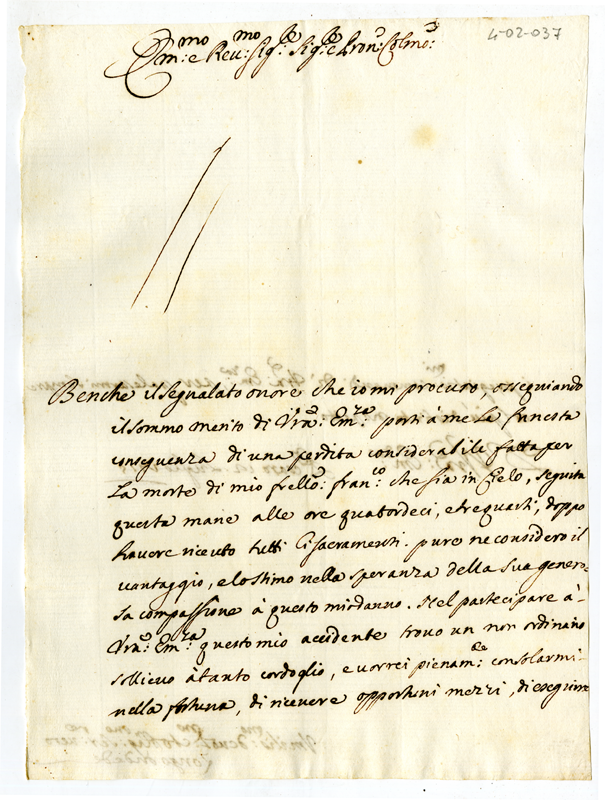 4-02-037
Em:mo e Reu:mo Sig:re Sig:re e Pron: Colmo:
Benche il segualato onore che io mi procuro, osseguiando
il sommo merito di Vra: Em:za porti à me la funesta
conseguenza di una perdita considerabile fatta per
la morte di mio frello: Fran:co che sia in Cielo, seguita
questa mane alle ore quatordeci, e tre quarti, doppo
havere riceuto tutti li sacramenti. pure ne considero il
vantaggio, e lo stimo nella speranza della sua genero-
sa compassione à questo mio danno. Nel partecipare à
Vra: Em:za questo mio accidente trovo un non ordinario
sollievo à tanto cordoglio, e vorrei pienam:te consolarmi
nella fortuna, di ricevere opportuni mezzi, di eseguire